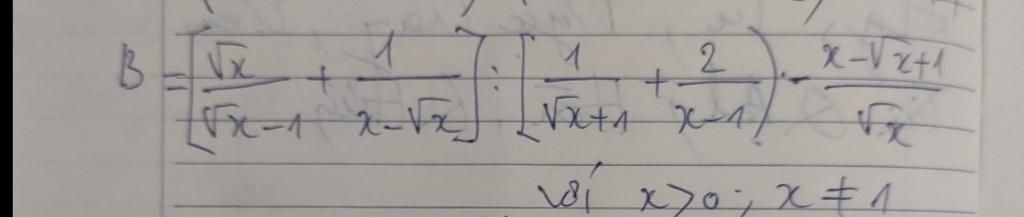 B = [√x/(√x-1) + 1/(x-√x)] : [1/(√x+1) + 2/(x-1)) · - (x-√x+1)/√x
với x>0; x ≠ 1